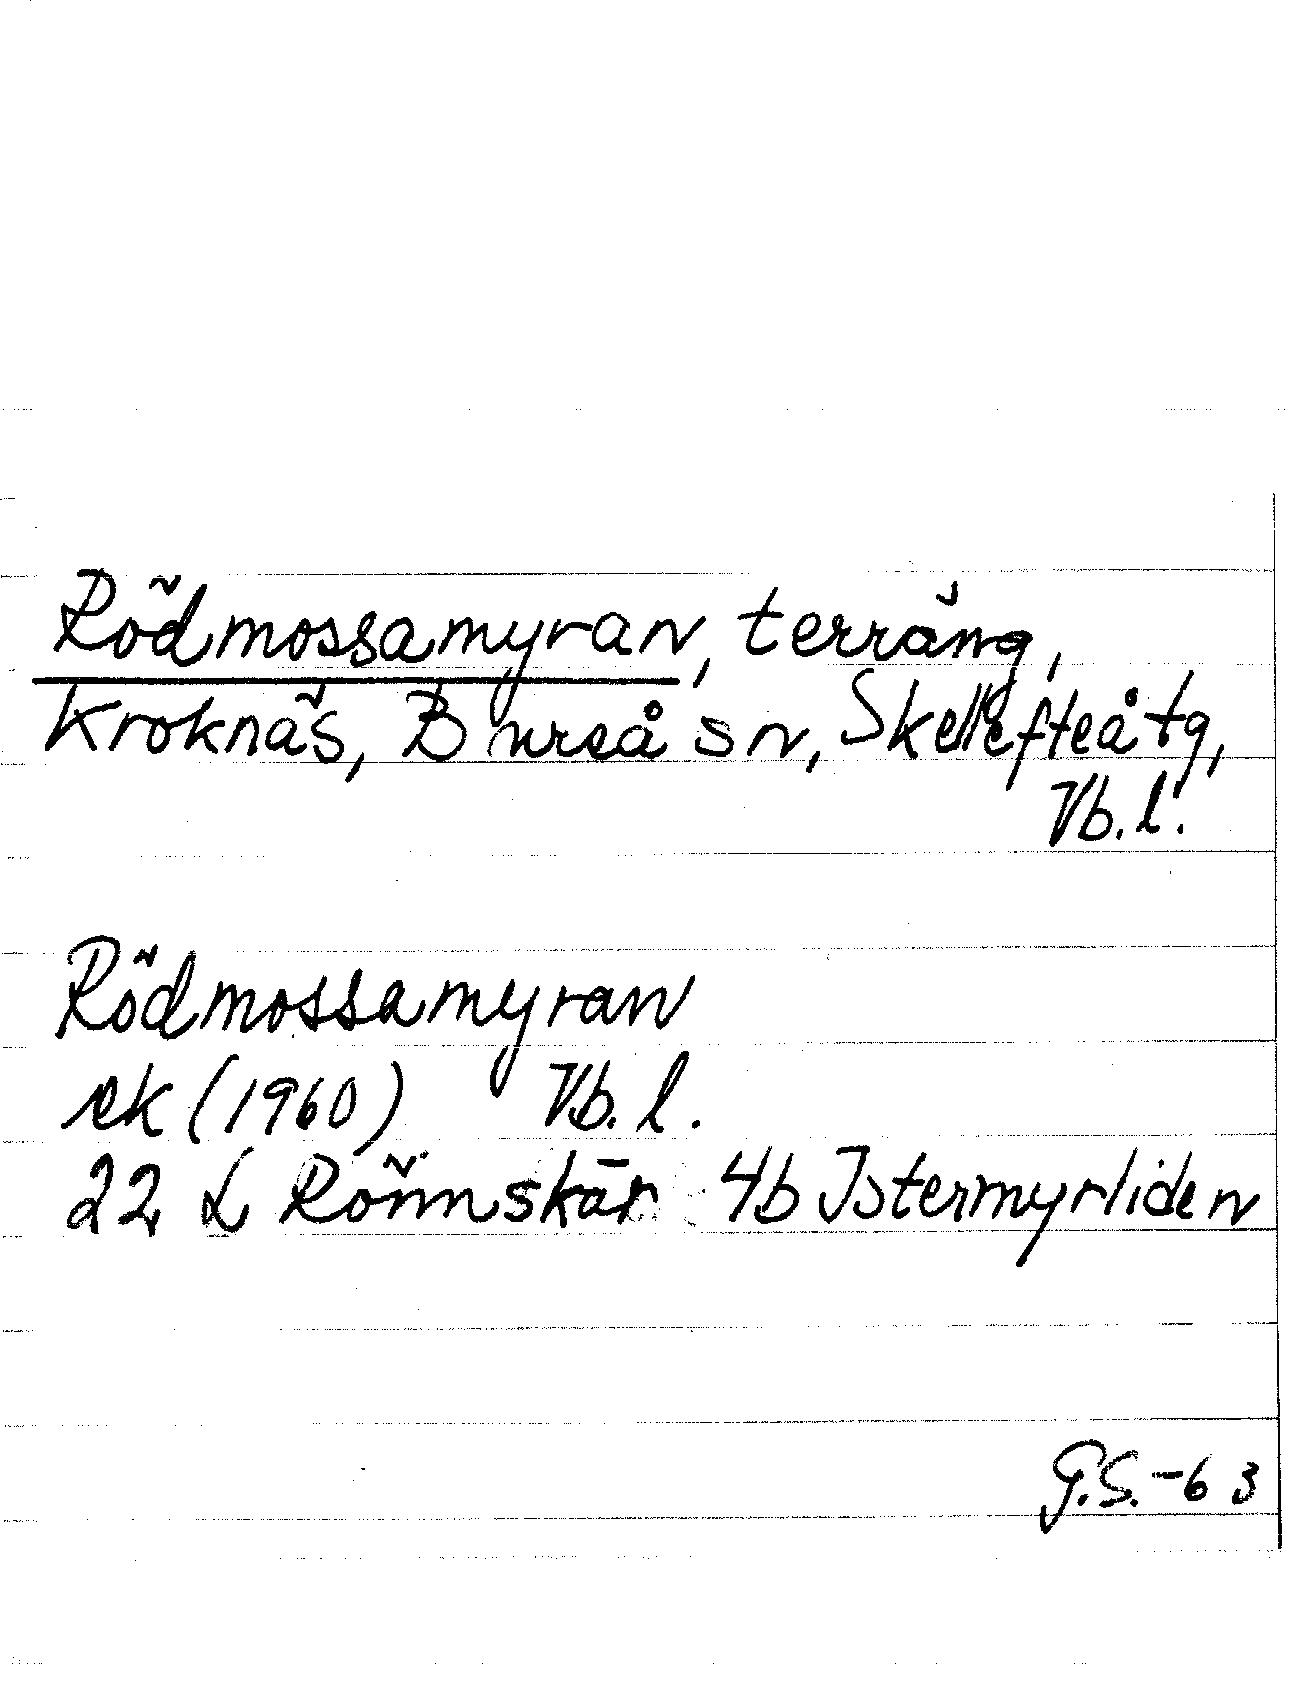 Rödmossamyran, terräng,
Kroknäs, Bureå sn, Skellefteå tg,
Vb.l.
Rödmossamyran
ek (1960) Vb. l.
22 L Rönnskär 4b Istermyrliden
G.S.-63